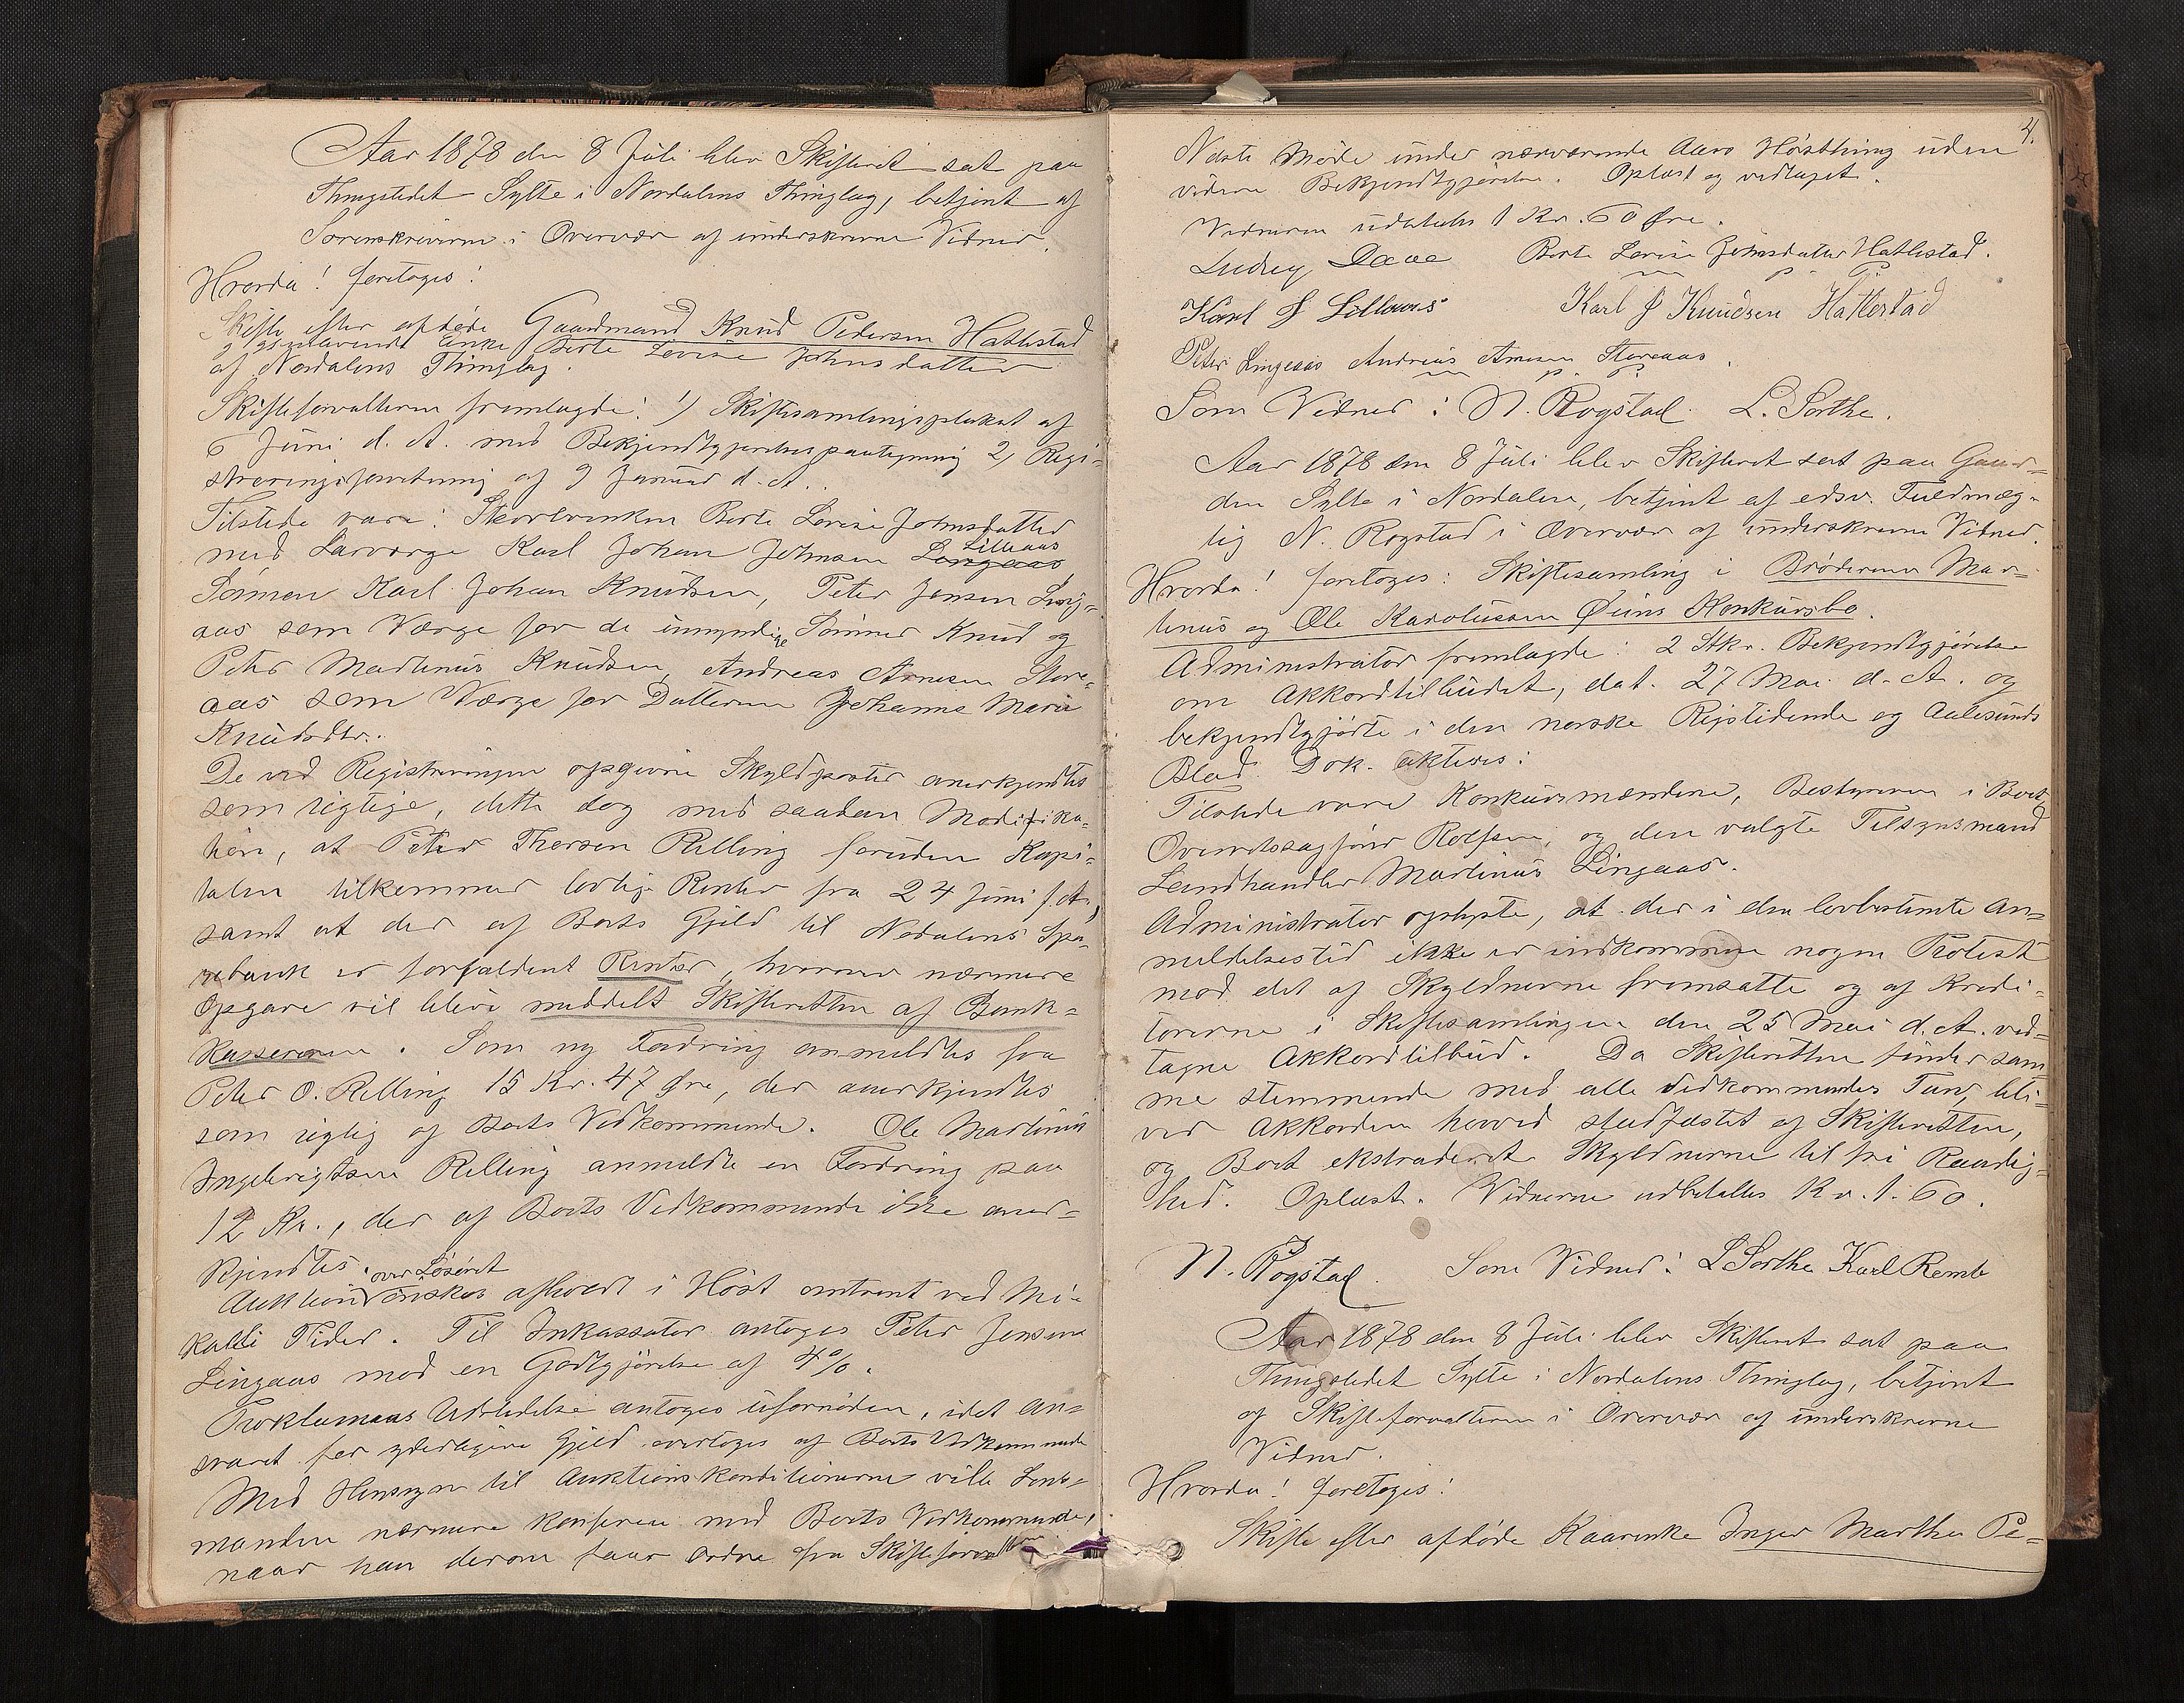 Aar 1878 den 8 Juli blev Skifteret sat paa
Thingstedet Sylte i Nordalens Thinglag, betjent af
Sorenskriveren i Overvær af underskrevne Vidner.
Hvorda! foretoges:
Skifte efter afdøde Gaardmand Knud Pedersen Hatlestad
og gjenlevende Enke Berte Lovise Johnsdatter
af Nordalens Thinglag.
Skifteforvalteren fremlagde: 1) Skiftesamlingsplakat af
6 Juni d. A. med Bekjendtgjørelsespaategning 2) Regi-
streringsforretning af 9 Januar d. A.
Tilstede vare: Stervboenken Berte Lovise Johnsdatter
med Laværge Karl Johan Johnsen Lingaas Lilleaas
Sønnen Karl Johan Knudsen, Peter Jensen Ling-
aas som Værge for de umyndige Sønner Knud og
Peter Martinus Knudsen, Andreas Arnesen Store-
aas som Værge for Datteren Johanne Marie
Knudsdtr.
De ved Registreringen opgivne Skyldposter anerkjendtes
som rigtige, dette dog med saadan Modifika-
tion, at Peter Thorsen Relling foruden Kapi-
talen tilkommer lovlige Renter fra 24 Juni f. A.,
samt at der af Boets Gjæld til Nordalens Spa-
rebank er forfaldent Renter, hvorom nærmere
Opgave vil blive meddelt Skifteretten af Bank-
kassereren. Som ny Fordring anmeldtes fra
Peter O. Relling 15 Kr. 47 Øre, der anerkjendtes
som rigtig af Boets Vedkommende. Ole Martinus
Ingebrigtsen Relling anmeldte en Fordring paa
12 Kr., der af Boets Vedkommende ikke aner-
kjendtes.
over Løsøret
Auktion ønskes afholdt i Høst omtrent ved Mi-
kalli Tider. Til Inkassator antoges Peter Jensen
Lingaas mod en Godtgjørelse af 4%.
Proklamaas Udstedelse antoges ufornøden, idet An-
svaret for yderligere Gjæld overtoges af Boets Vedkommende
Med Hensyn til Auktionskonditionerne vilde Lens-
manden nærmere konferere med Boets Vedkommende,
naar han derom faar Ordre fra Skifteforvalteren.
4.
Næste Møde under nærværende Aars Høstthing uden
videre Bekjendtgjørelse. Oplæst og vedtaget.
Vidnerne udbetaltes 1 Kr. 60 Øre.
Ludvig Daae Berte Lovise Johnsdatter Hatlestad.
m. p. P.
Karl J Lillaas Karl J Knudsen Hatlestad
Peter Lingeaas Andreas Arnesen Storeaas.
m. p. P.
Som Vidner: N. Rogstad. L. Sorthe.
Aar 1878 den 8 Juli blev Skifteret sat paa Gaar-
den Sylte i Nordalen, betjent af edsv. Fuldmæg-
tig N. Rogstad i Overvær af underskrevne Vidner.
Hvorda! foretoges: Skiftesamling i Brødrene Mar-
tinus og Ole Karolussen Øiens Konkursbo.
Administrator fremlagde: 2 Stkr. Bekjendtgjørelse
om Akkordtilbudet, dat. 27 Mai d. A. og
bekjendtgjorte i den norske Rigstidende og Aalesunds
Blad. Dok. akteres:
Tilstede vare Konkursmændene, Bestyreren i Boet
Overretssagfører Rolfsen, og den valgte Tilsynsmand
Landhandler Martinus Lingaas.
Administrator oplyste, at der i den lovbestemte An-
meldelsestid ikke er indkommen nogen Protest
mod det af Skyldnerne fremsatte og af Kredi-
torerne i Skiftesamlingen den 25 Mai d. A. ved-
tagne Akkordtilbud. Da Skifteretten finder sam-
me stemmende med alle Vedkommendes Tarv, bli-
ver Akkorden herved stadfæstet af Skifteretten,
og Boet ekstraderet Skyldnerne til fri Raadig-
hed. Oplæst. Vidnerne udbetaltes Kr. 1.60.
N. Rogstad. Som Vidner: L Sorthe Karl Remb
Aar 1878 den 8 Juli blev Skifteret sat paa
Thingstedet Sylte i Nordalens Thinglag, betjent
af Skifteforvalteren i Overvær af underskrevne
Vidner.
Hvorda! foretoges:
Skifte efter afdøde Kaarenke Inger Marthe Pe-